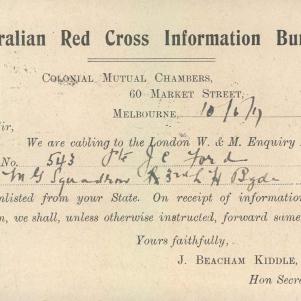 ralian Red Cross Information Bu
COLONIAL MUTUAL CHAMBERS,
60 MARKET STREET,
MELBOURNE, 10/6/17
Sir,
We are cabling to the London W. & M. Enquiry
No. 543 Pte J E Ford
M G Squadron 3rd L H Bgde
nlisted from your State. On receipt of information
n, we shall, unless otherwise instructed, forward same
Yours faithfully,
J. BEACHAM KIDDLE,
Hon Secre